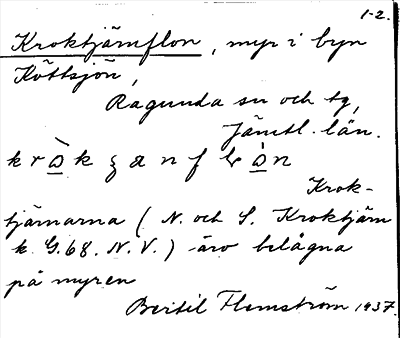 1-2.
Kroktjärnflon, myr i byn
Köttsjön,
Ragunda sn och tg,
Jämtl. län.
Krok-
tjärnarna (N. och S. Kroktjärn
k G.68. N.V.) äro belägna
på myren
Bertil Flemström 1937.